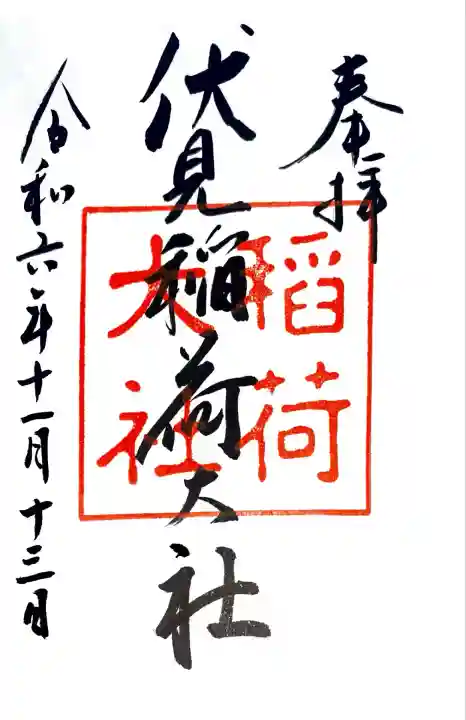 奉拝
伏見稲荷大社
稲荷
大社
令和六年十一月十三日